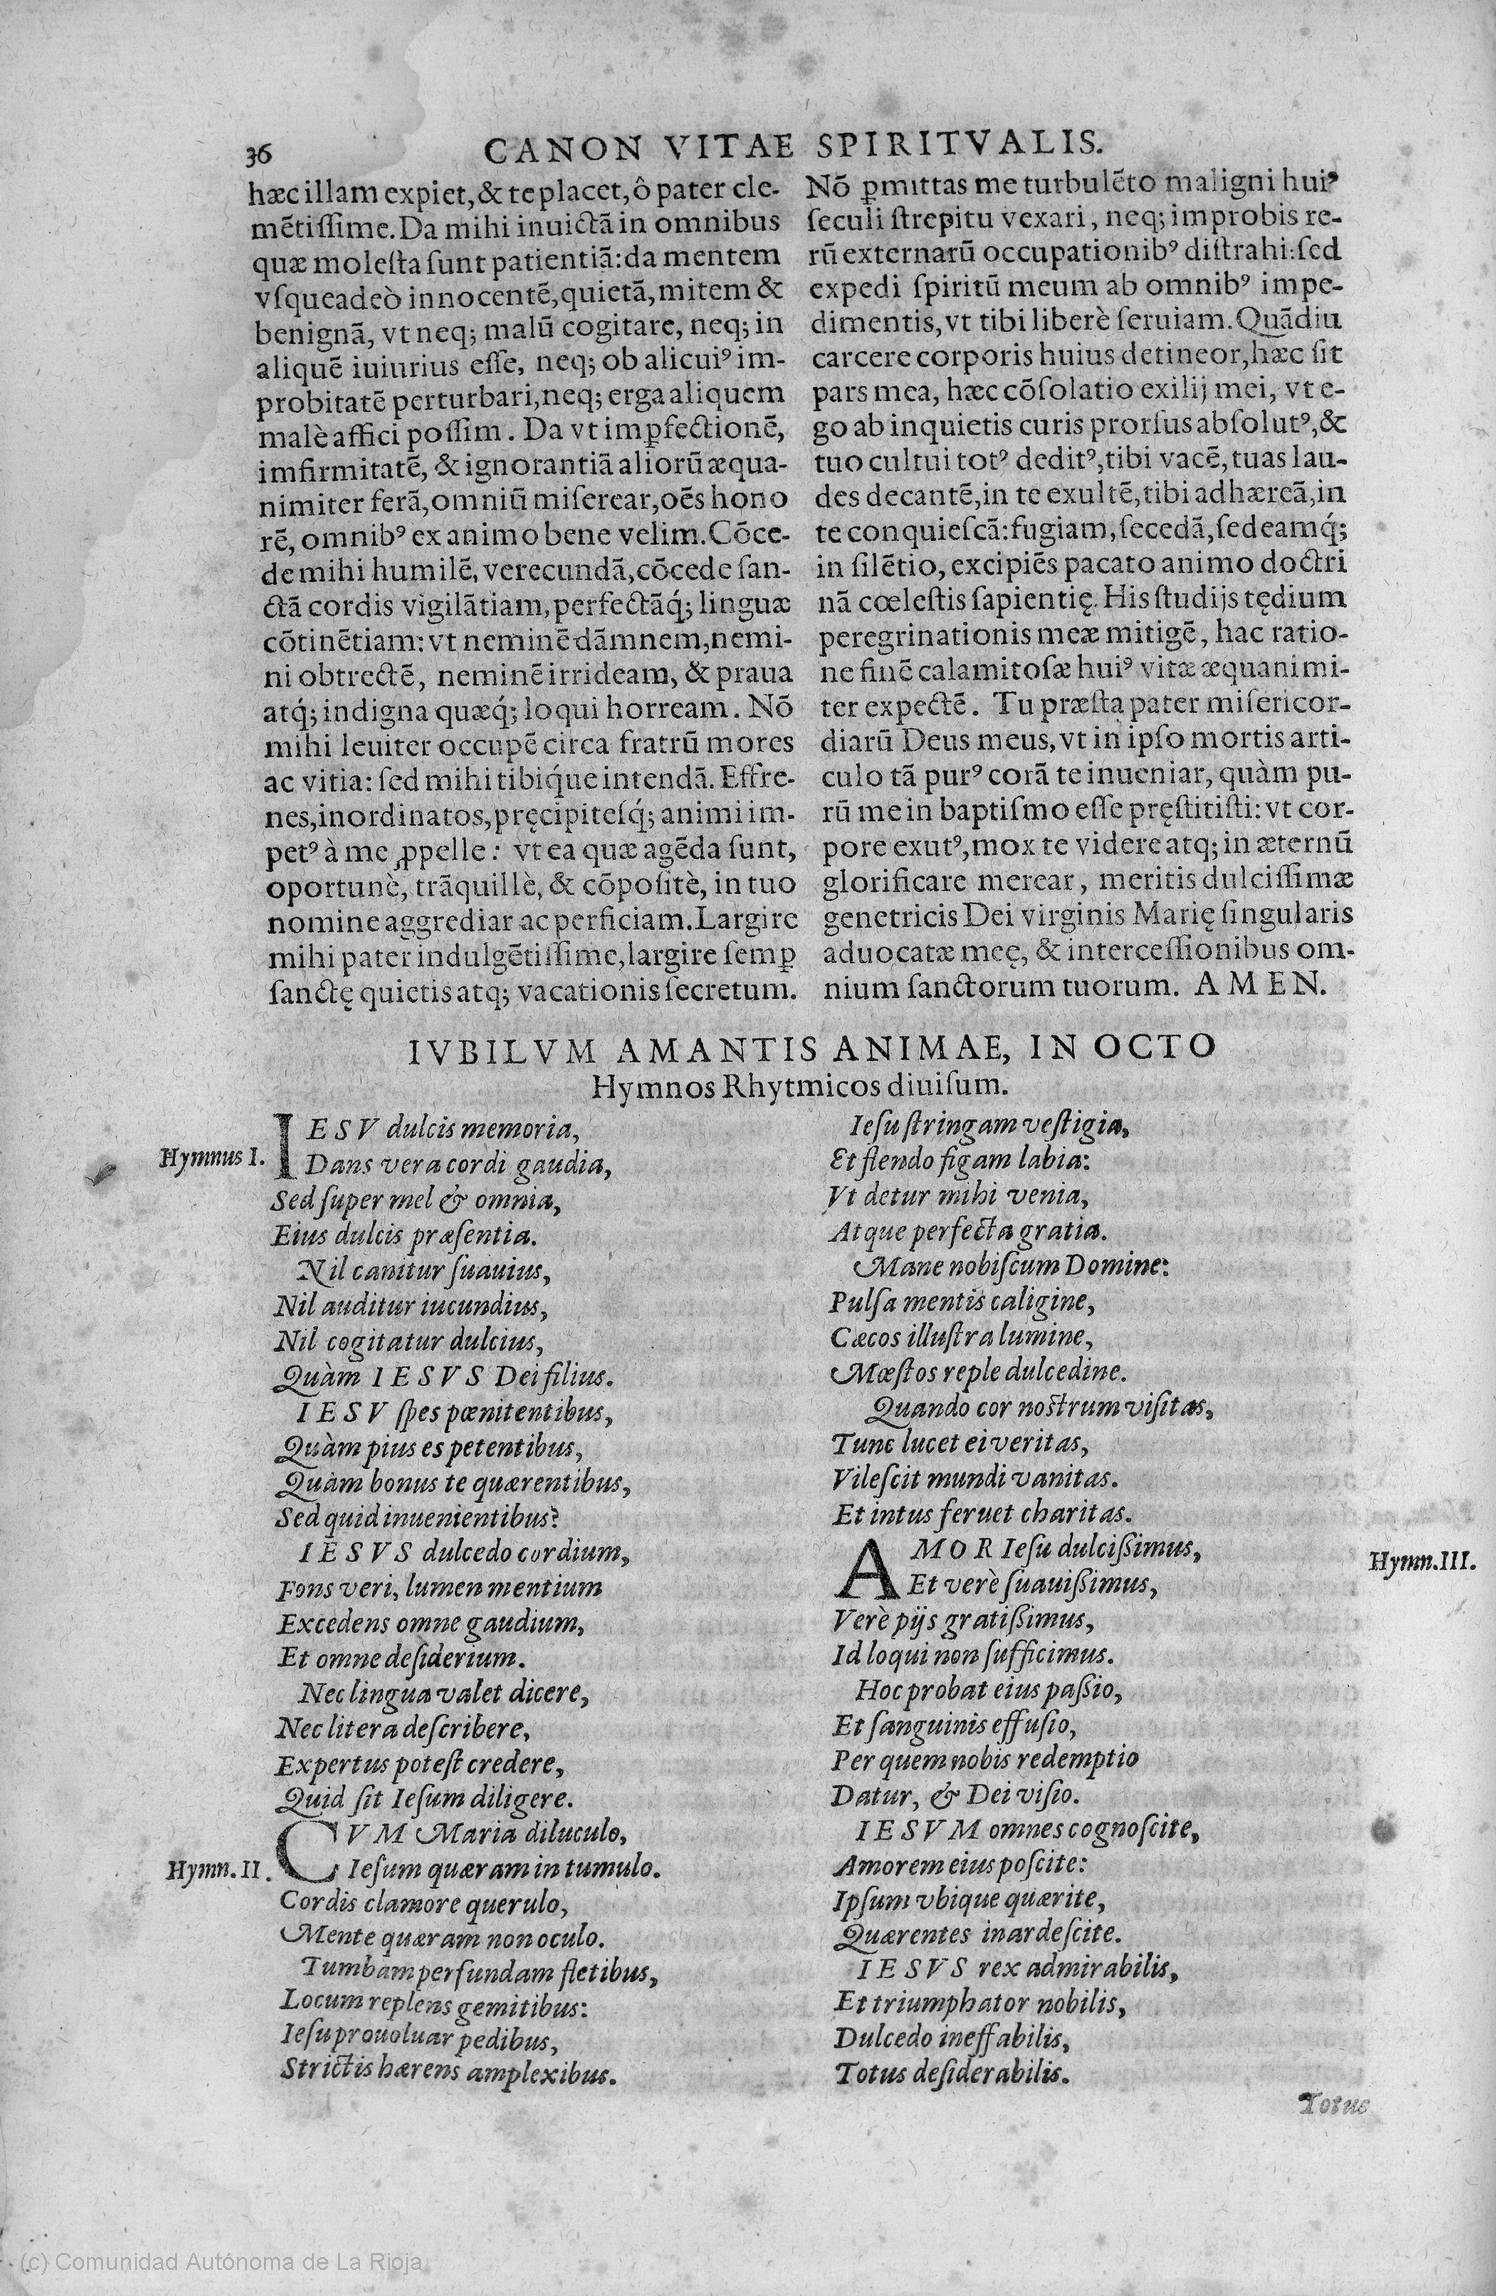 36
CANON VITAE SPIRITVALIS.
hæc illam expiet, & te placet, ô pater cle-
mẽtissime. Da mihi inuictã in omnibus
quæ molesta sunt patientiã: da mentem
vsqueadeò innocentẽ, quietã, mitem &
benignã, vt neq; malũ cogitare, neq; in
aliquẽ iuiurius esse, neq; ob alicuiꝰ im-
probitatẽ perturbari, neq; erga aliquem
malè affici possim. Da vt imꝑfectionẽ,
imfirmitatẽ, & ignorantiã aliorũ æqua-
nimiter ferã, omniũ miserear, oẽs hono
rẽ, omnibꝰ ex animo bene velim. Cõce-
de mihi humilẽ, verecundã, cõcede san-
ctã cordis vigilãtiam, perfectãq́; linguæ
cõtinẽtiam: vt neminẽ dãmnem, nemi-
ni obtrectẽ, neminẽ irrideam, & praua
atq́; indigna quæq́; loqui horream. Nõ
mihi leuiter occupẽ circa fratrũ mores
ac vitia: sed mihi tibiq́ue intendã. Effre-
nes, inordinatos, pręcipitesq́; animi im-
petꝰ à me ꝓpelle: vt ea quæ agẽda sunt,
oportunè, trãquillè, & cõpositè, in tuo
nomine aggrediar ac perficiam. Largire
mihi pater indulgẽtissime, largire semꝑ
sanctę quietis atq; vacationis secretum.
Nõ ꝑmittas me turbulẽto maligni huiꝰ
seculi strepitu vexari, neq; improbis re-
rũ externarũ occupationibꝰ distrahi: sed
expedi spiritũ meum ab omnibꝰ impe-
dimentis, vt tibi liberè seruiam. Quãdiu
carcere corporis huius detineor, hæc sit
pars mea, hæc cõsolatio exilij mei, vt e-
go ab inquietis curis prorsus absolutꝰ, &
tuo cultui totꝰ deditꝰ, tibi vacẽ, tuas lau-
des decantẽ, in te exultẽ, tibi adhæreã, in
te conquiescã: fugiam, secedã, sedeamq́;
in silẽtio, excipiẽs pacato animo doctri
nã cœlestis sapientię. His studijs tędium
peregrinationis meæ mitigẽ, hac ratio-
ne finẽ calamitosæ huiꝰ vitæ æquanimi-
ter expectẽ. Tu præsta pater misericor-
diarũ Deus meus, vt in ipso mortis arti-
culo tã purꝰ corã te inueniar, quàm pu-
rũ me in baptismo esse pręstitisti: vt cor-
pore exutꝰ, mox te videre atq; in æternũ
glorificare merear, meritis dulcissimæ
genetricis Dei virginis Marię singularis
aduocatæ meę, & intercessionibus om-
nium sanctorum tuorum. AMEN.
IVBILVM AMANTIS ANIMAE, IN OCTO
Hymnos Rhytmicos diuisum.
Hymnus I.
IESV dulcis memoria,
Dans vera cordi gaudia,
Sed super mel & omnia,
Eius dulcis præsentia.
Nil canitur suauius,
Nil auditur iucundius,
Nil cogitatur dulcius,
Quàm IESVS Dei filius.
IESV spes pœnitentibus,
Quàm pius es petentibus,
Quàm bonus te quærentibus,
Sed quid inuenientibus?
IESVS dulcedo cordium,
Fons veri, lumen mentium
Excedens omne gaudium,
Et omne desiderium.
Nec lingua valet dicere,
Nec litera describere,
Expertus potest credere,
Quid sit Iesum diligere.
Hymn. II.
CVM Maria diluculo,
Iesum quæram in tumulo.
Cordis clamore querulo,
Mente quæram non oculo.
Tumbam perfundam fletibus,
Locum replens gemitibus:
Iesu prouoluar pedibus,
Strictis hærens amplexibus.
Iesu stringam vestigia,
Et flendo figam labia:
Vt detur mihi venia,
Atque perfecta gratia.
Mane nobiscum Domine:
Pulsa mentis caligine,
Cæcos illustra lumine,
Mœstos reple dulcedine.
Quando cor nostrum visitas,
Tunc lucet ei veritas,
Vilescit mundi vanitas.
Et intus feruet charitas.
Hymn. III.
AMOR Iesu dulcissimus,
Et verè suauissimus,
Verè pijs gratissimus,
Id loqui non sufficimus.
Hoc probat eius passio,
Et sanguinis effusio,
Per quem nobis redemptio
Datur, & Dei visio.
IESVM omnes cognoscite,
Amorem eius poscite:
Ipsum vbique quærite,
Quærentes inardescite.
IESVS rex admirabilis,
Et triumphator nobilis,
Dulcedo ineffabilis,
Totus desiderabilis.
Totus
(c) Comunidad Autónoma de La Rioja